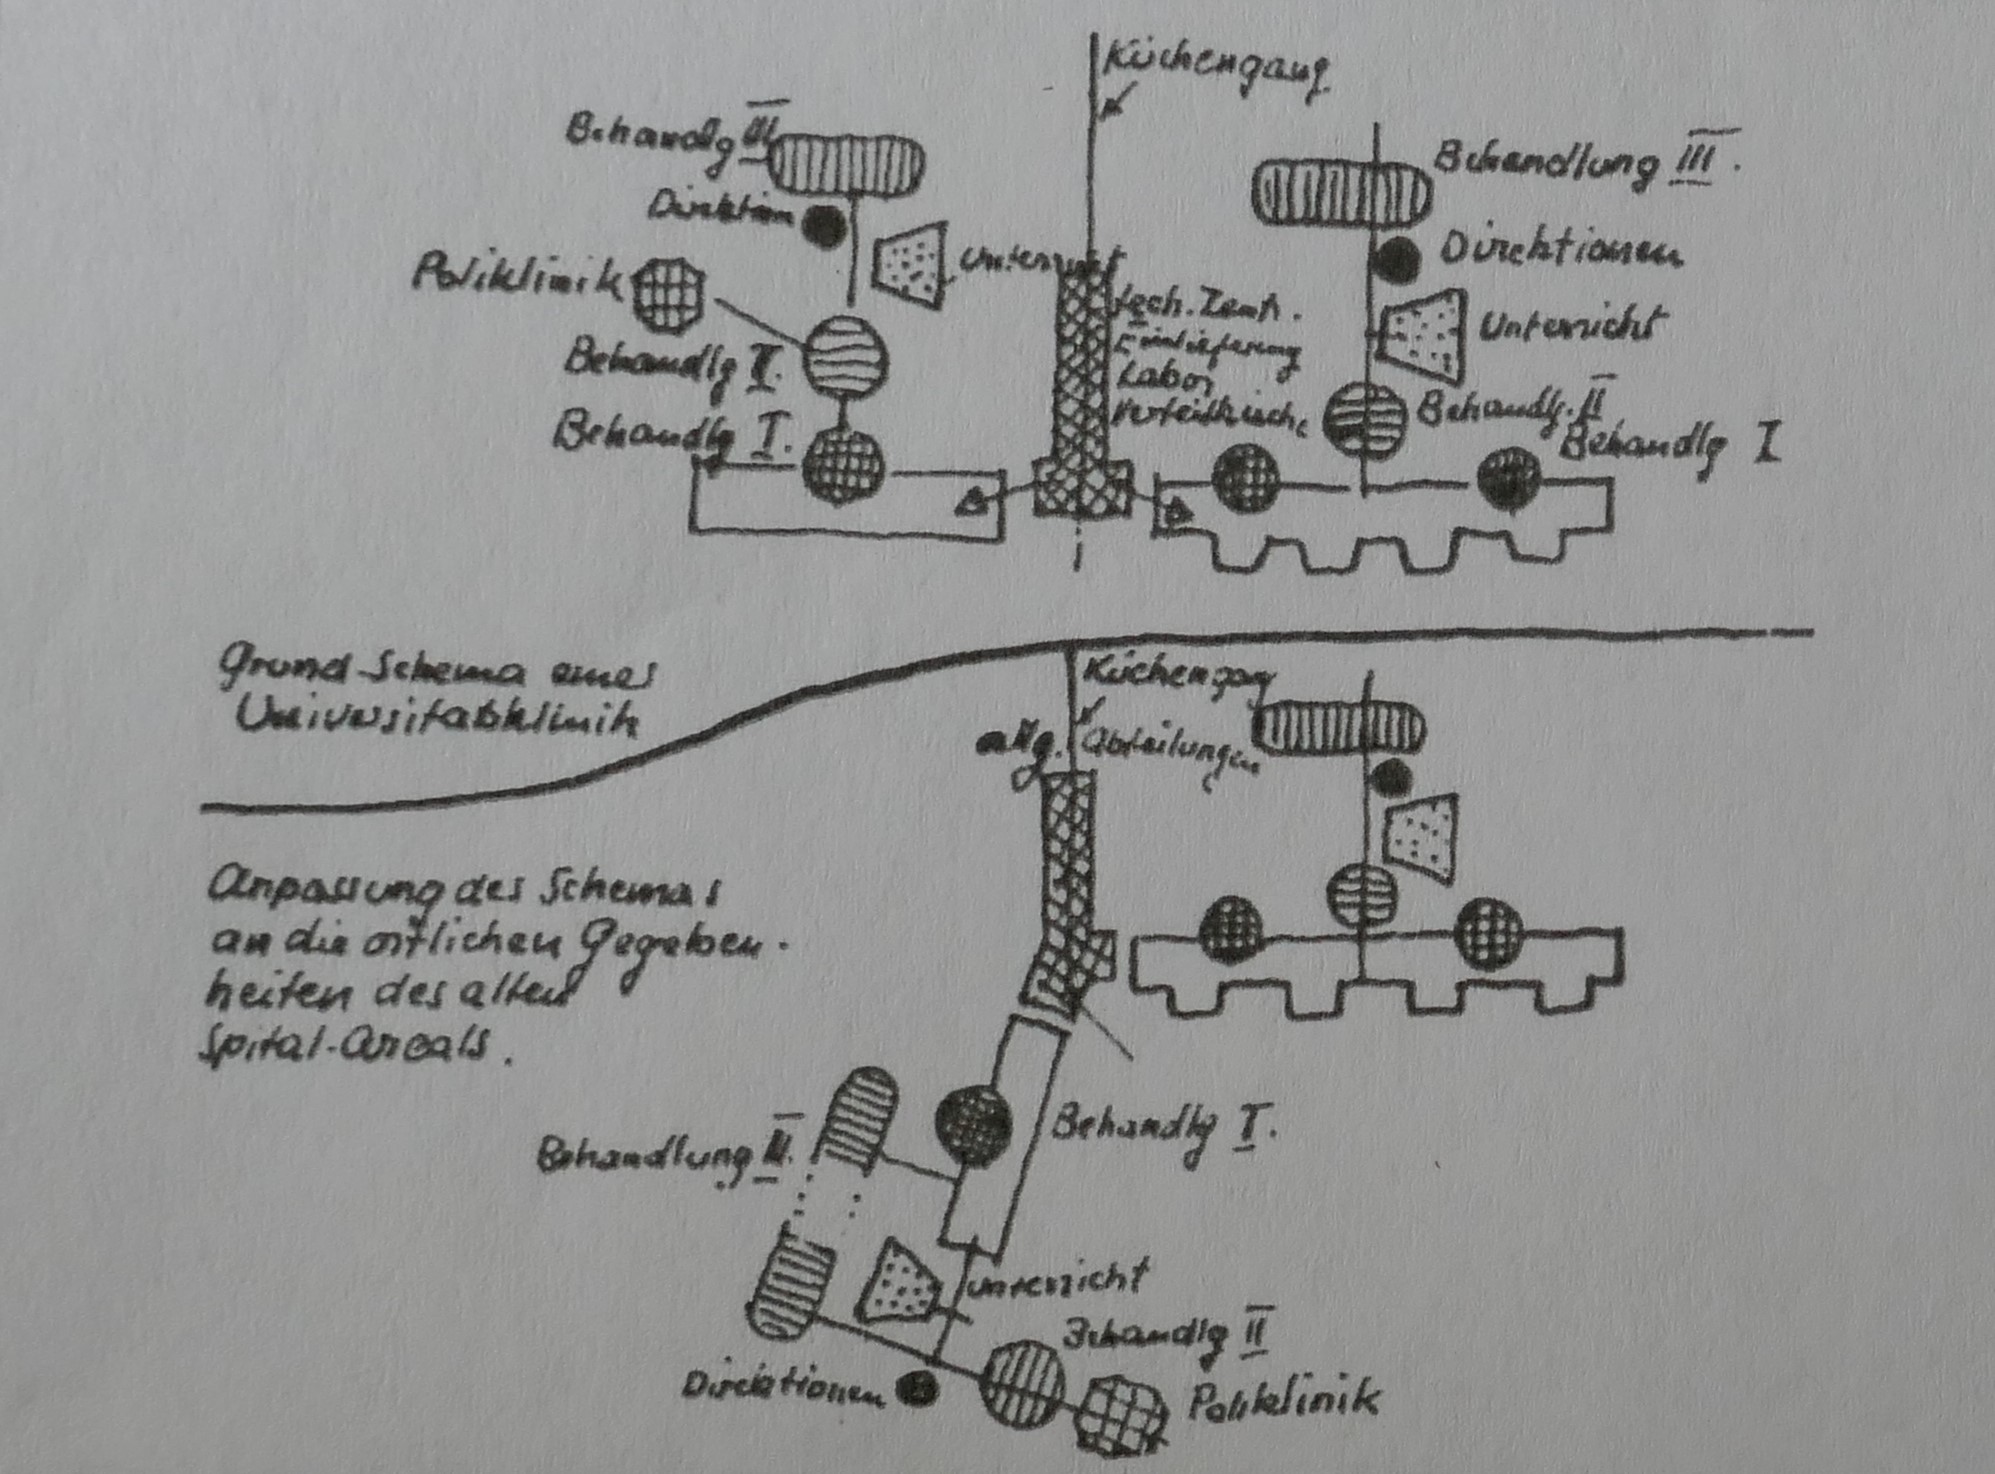 Küchengang
Behandlg III
Direktion
Poliklinik
Unterricht
Behandlg II.
Behandlg I.
tech. Zentr.
Einlieferung
Labor
Verteilküche
Behandlung III.
Direktionen
Unterricht
Behandlg. II
Behandlg I
Grund-Schema eines
Universitätsklinik
Küchengang
allg. Abteilungen
Anpassung des Schemas
an die örtlichen Gegeben-
heiten des alten
Spital-Areals.
Behandlg I.
Behandlung III.
Unterricht
Behandlg II
Direktionen
Poliklinik